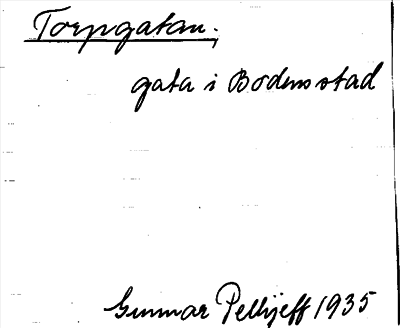 Torpgatan,
gata i Bodens stad
Gunnar Pellijeff 1935